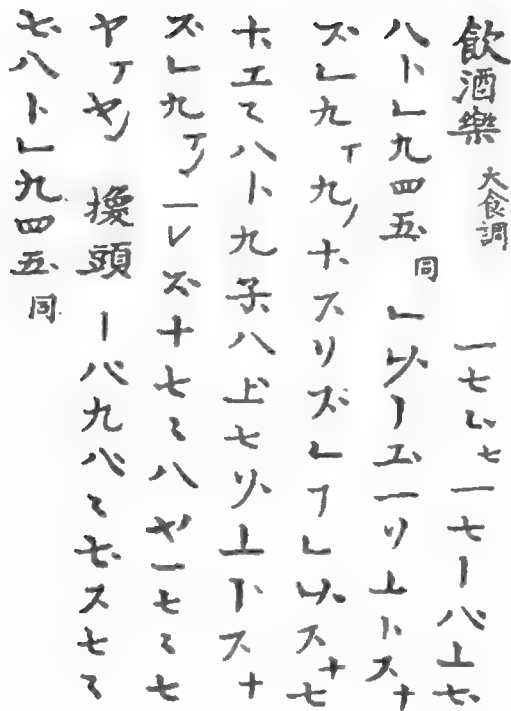 飲酒樂 大食調 一七ミ、七一七丨八、丄七、
八卜乚九四五、同 乚ソ、丨エ、一リ丄卜、ス十
ス、乚九丅九ノ十、スリス、乚フ乚ソ、ス十七
十、エミ八卜九子八丄、七ソ、丄卜、ス十
ス、乚九丅ノ一レス、十七ミ八ヤ、一七ミ七
ヤ丅ヤノ 換頭 丨八、九八、ミ七、ス七ミ
七、八卜乚九四五、同